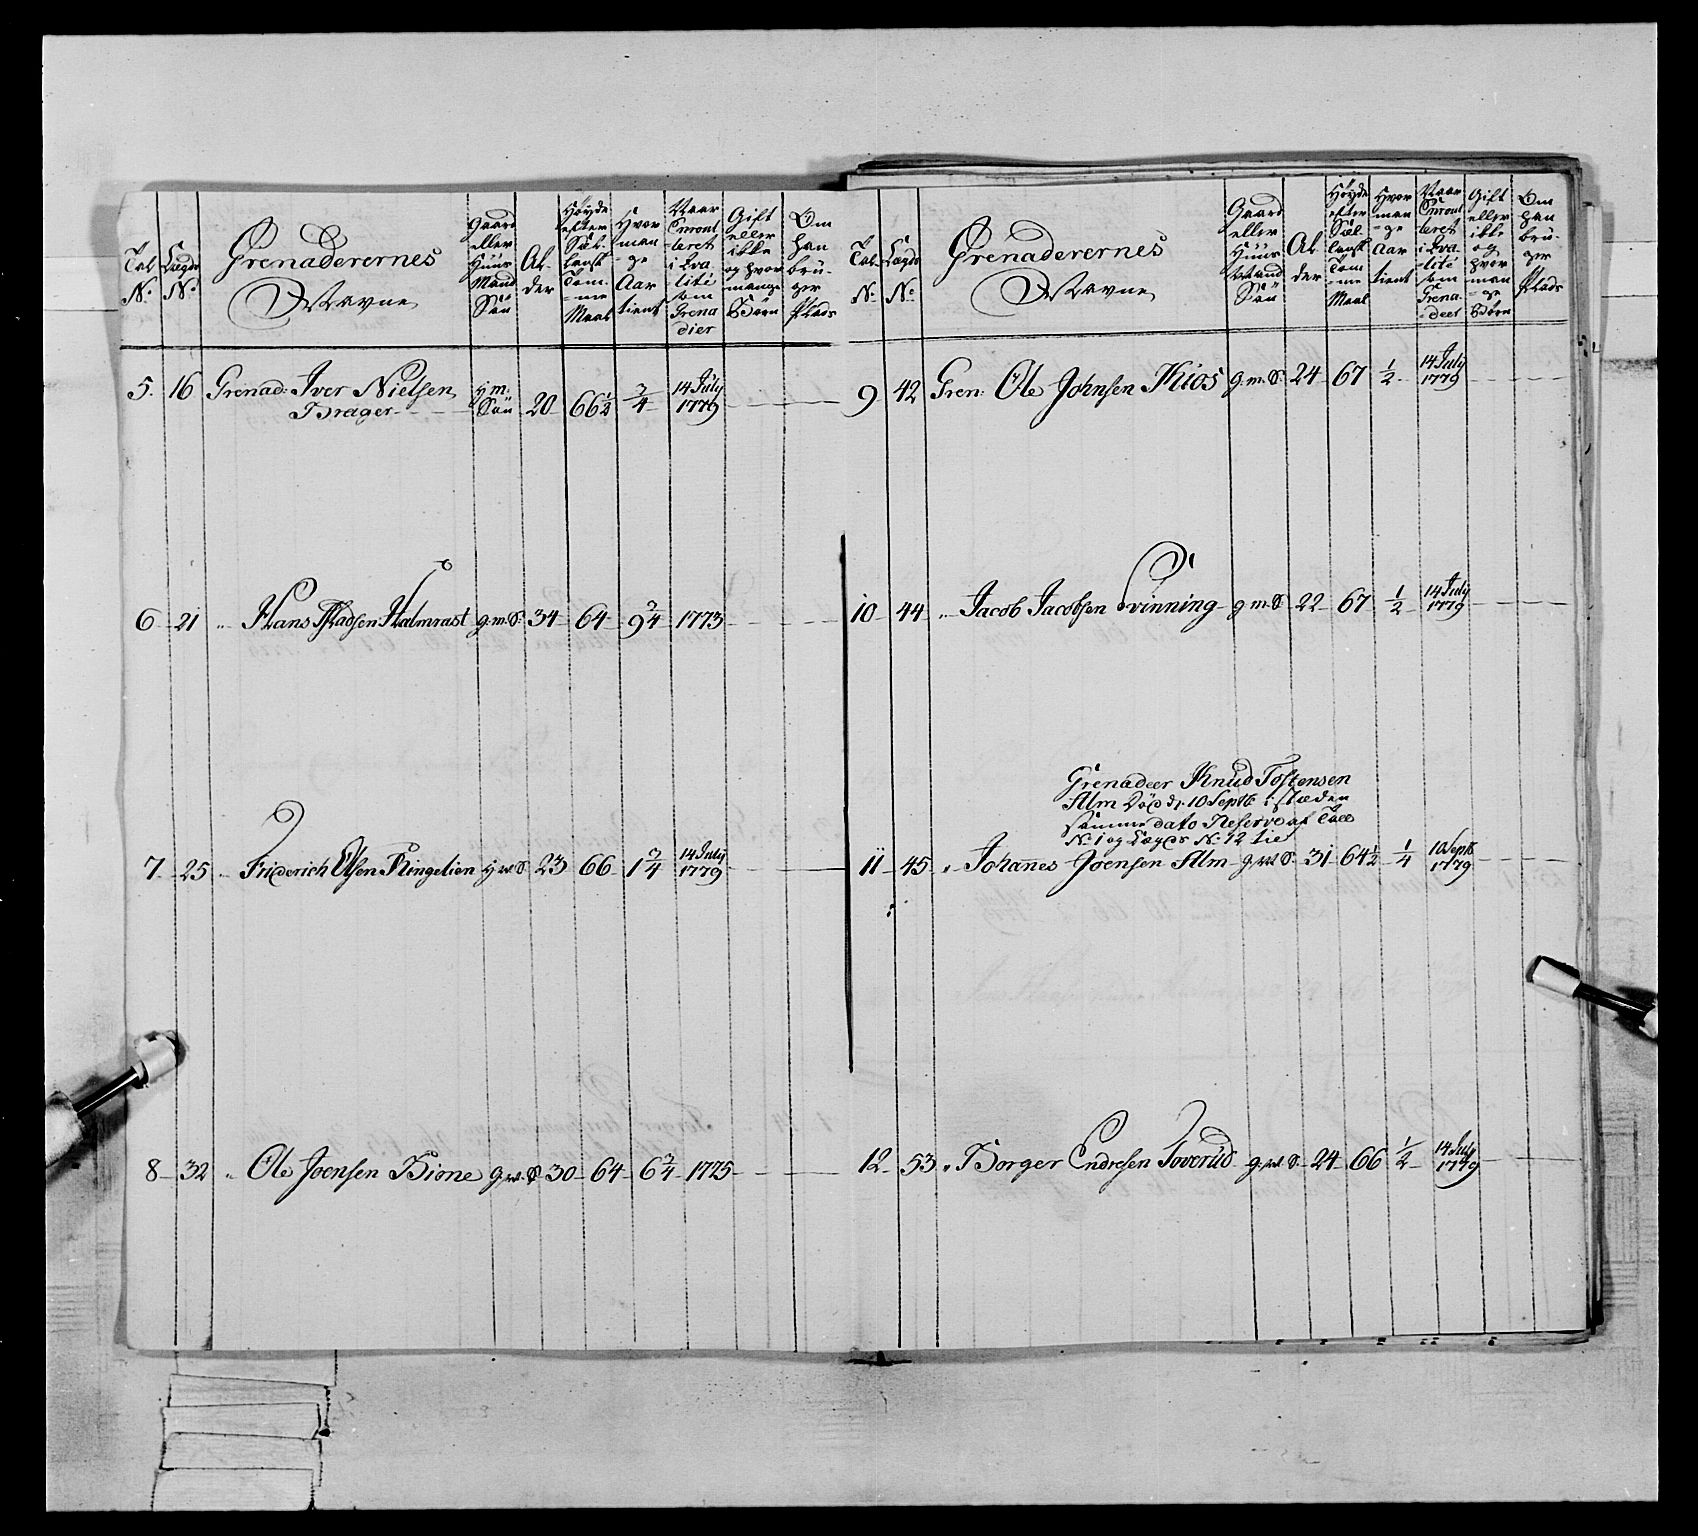 Tal N:
Lægds N:
Grenaderernes Navne
Gaard eller Huus Mand Søn
Al- der
Høyde efter Siæl- lansk Tom- me Maal
Hvor man- ge Aar tient
Naar Enroul- leret i Qva- lité som Grena dier
Gift eller ikke og hvor mange Børn
Om han bru- ger Plads
5. 16 Grenad: Iver Nielsen H m: Søn 20 66 1/2 3/4 14 July 1779
Brager
6 21 " Hans Madsen Halmrast g. m. S. 34 64 9 3/4 1773
7 25 " Friderich Olsen Ringelien H m S. 23 66 1 3/4 14 July 1779
8 32 " Ole Joensen Bione g. m. S 30 64 6 3/4 1775
Tal N:
Lægds N:
Grenaderernes Navne
Gaard eller Huus Mand Søn
Al- der
Høyde efter Siæl- lansk Tom- me Maal
Hvor man- ge Aar tient
Naar Enroul- leret i Qva- lité som Grena- deer
Gift eller ikke og hvor man- ge Børn
Om han bru- ger Plads
9 42 Gren: Ole Johnsen Kios g. m. S. 24 67 1/2 14 July 1779
10 44 " Jacob Jacobsen Svinning g m. S 22 67 1/2 14 July 1779
Grenadeer Knud Tostensen
Alm Død d: 10 Septbr i stæden
samme dato Reserve af
No 1 og Lægds No 12
11 45 " Johanes Joensen Alm g. m S. 31 64 1/2 1/4 10 Septb 1779
12 53 " Borger Endresen Toverud g. m S. 24 66 1/2 14 July 1779